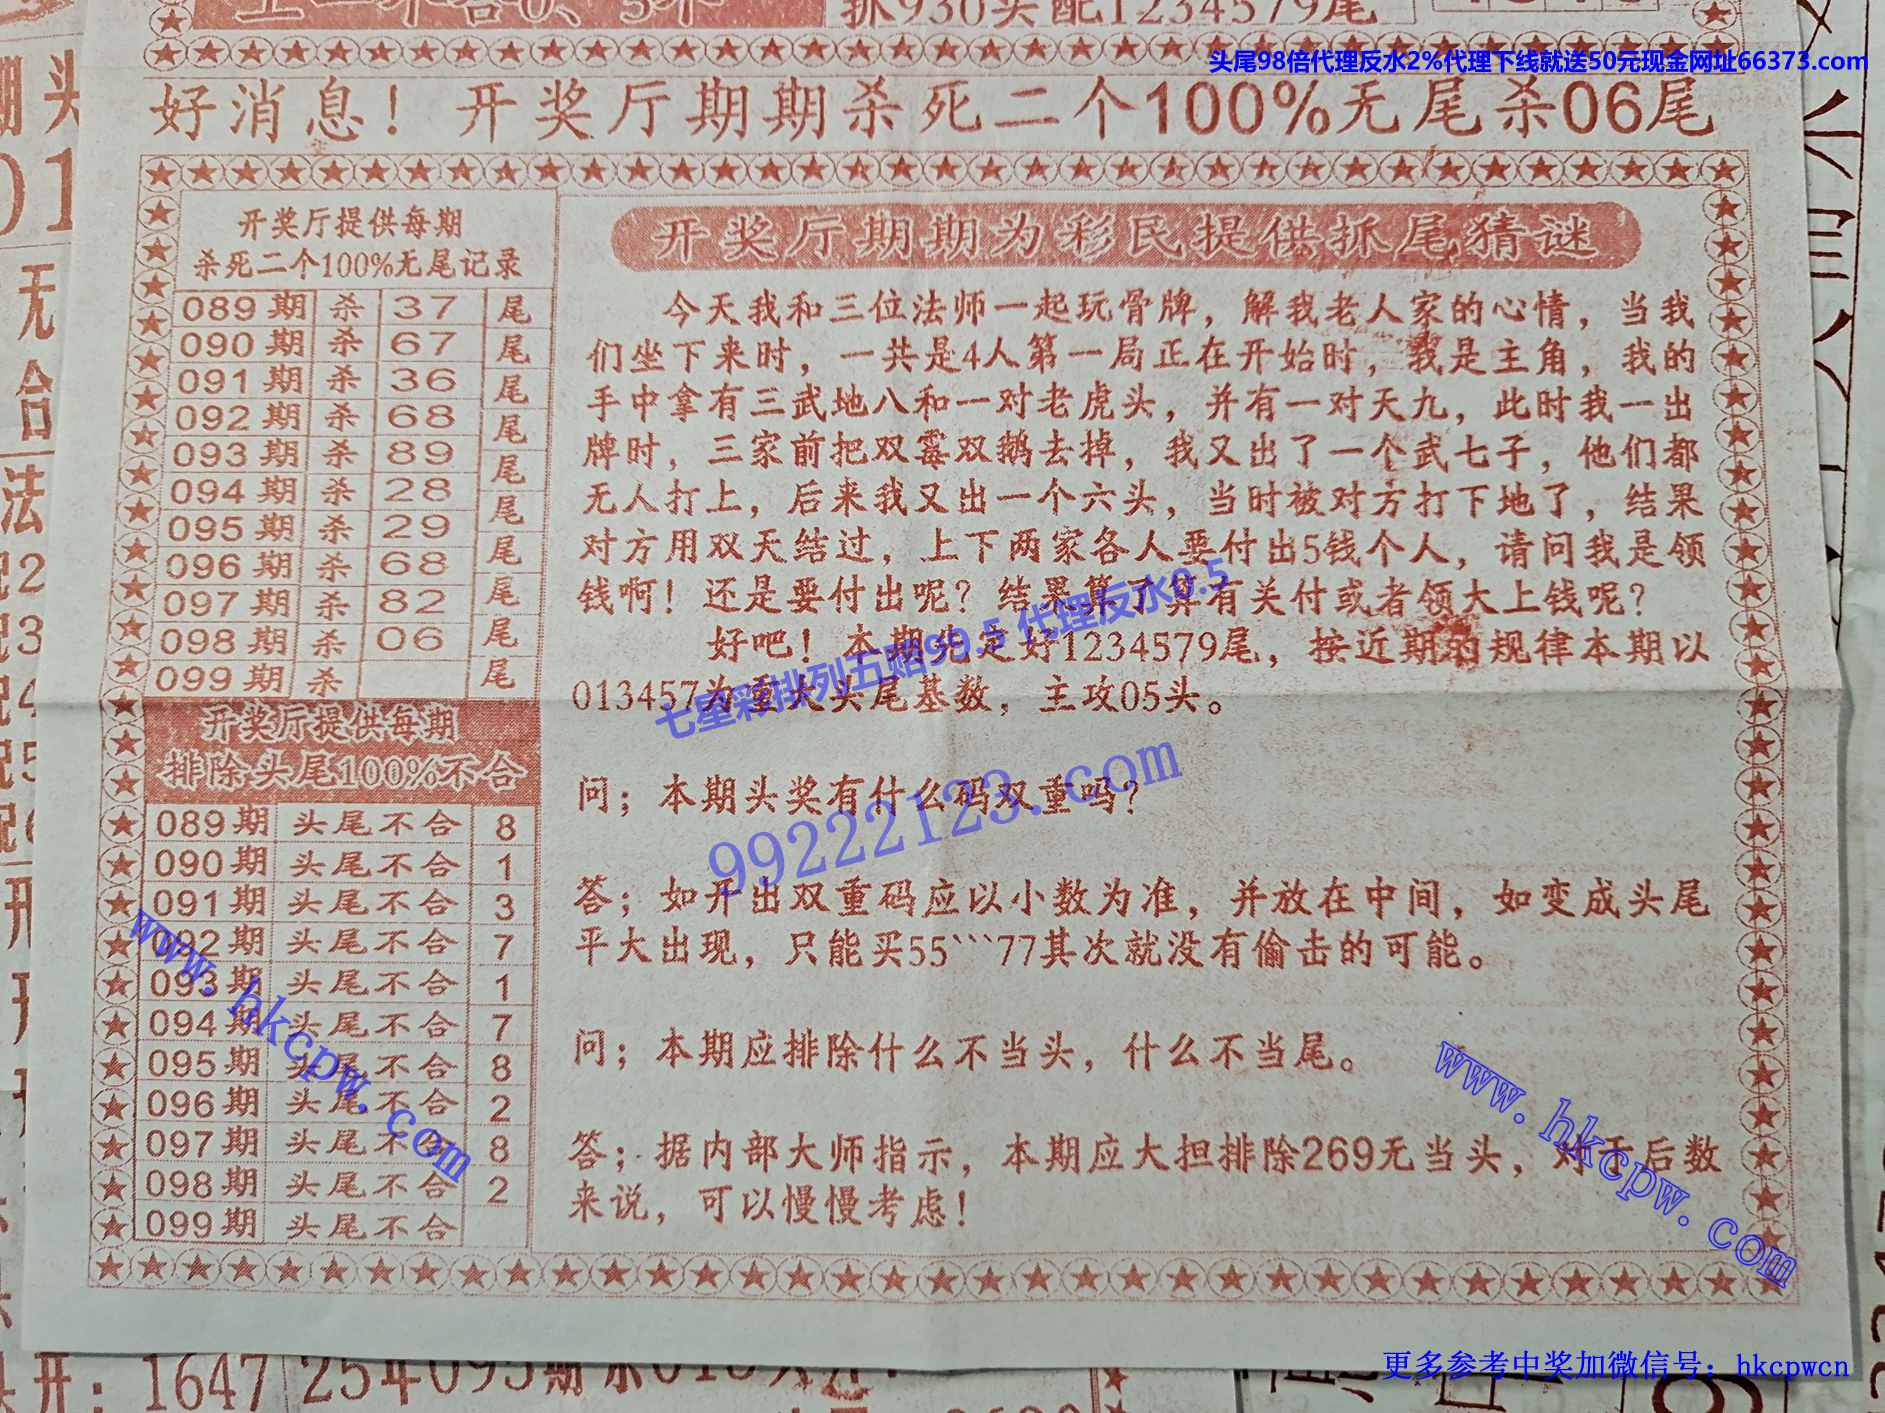 抓930头配1234579尾
头尾98倍代理反水2%代理下线就送50元现金网址66373.com
好消息！开奖厅期期杀死二个100%无尾杀06尾
开奖厅提供每期
杀死二个100%无尾记录
089期 杀 37 尾
090期 杀 67 尾
091期 杀 36 尾
092期 杀 68 尾
093期 杀 89 尾
094期 杀 28 尾
095期 杀 29 尾
096期 杀 68 尾
097期 杀 82 尾
098期 杀 06 尾
099期 杀 尾
开奖厅提供每期
排除头尾100%不合
089期 头尾不合 8
090期 头尾不合 1
091期 头尾不合 3
092期 头尾不合 7
093期 头尾不合 1
094期 头尾不合 7
095期 头尾不合 8
096期 头尾不合 2
097期 头尾不合 8
098期 头尾不合 2
099期 头尾不合
开奖厅期期为彩民提供抓尾猜谜
今天我和三位法师一起玩骨牌，解我老人家的心情，当我
们坐下来时，一共是4人第一局正在开始时，我是主角，我的
手中拿有三武地八和一对老虎头，并有一对天九，此时我一出
牌时，三家前把双霉双鹅去掉，我又出了一个武七子，他们都
无人打上，后来我又出一个六头，当时被对方打下地了，结果
对方用双天结过，上下两家各人要付出5钱个人，请问我是领
钱啊！还是要付出呢？结果算了算有关付或者领大上钱呢？
好吧！本期先定好1234579尾，按近期的规律本期以
013457为重大头尾基数，主攻05头。
问；本期头奖有什么码双重吗？
答；如开出双重码应以小数为准，并放在中间，如变成头尾
平大出现，只能买55```77其次就没有偷击的可能。
问；本期应排除什么不当头，什么不当尾。
答；据内部大师指示，本期应大担排除269无当头，对于后数
来说，可以慢慢考虑！
七星彩排列五赔99.5 代理反水0.5
99222123.com
www.hkcpw.com
www.hkcpw.com
开：1647
更多参考中奖加微信号：hkcpwcn